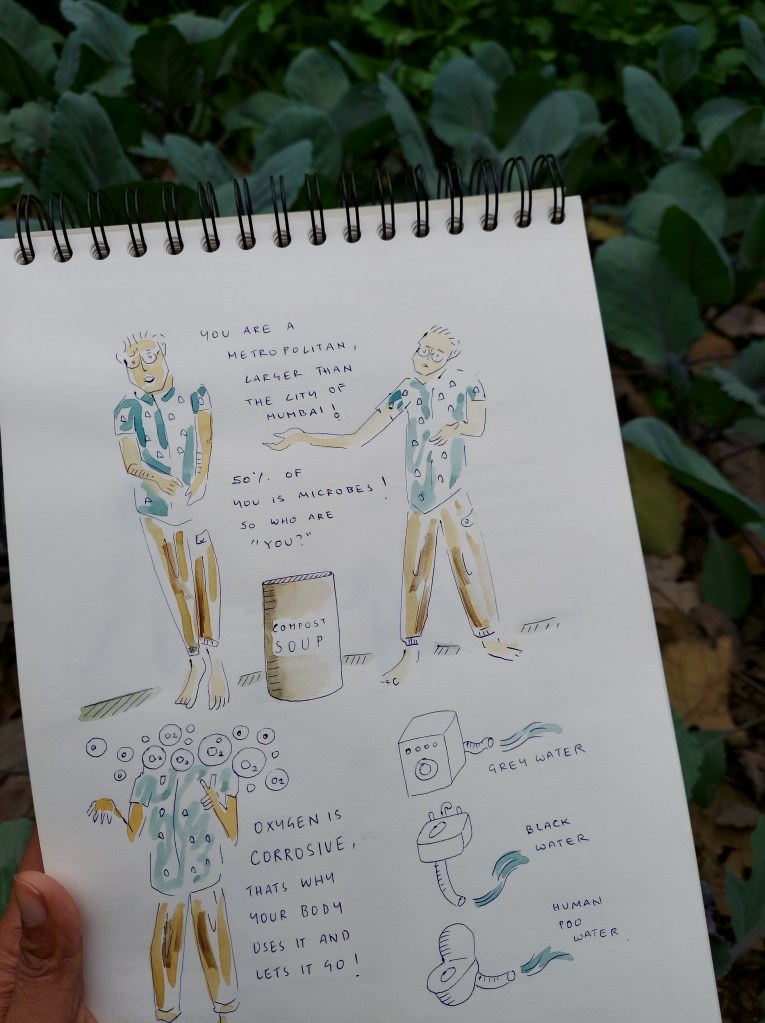 YOU ARE A
METROPOLITAN,
LARGER THAN
THE CITY OF
MUMBAI!
50% OF
YOU IS MICROBES!
SO WHO ARE
"YOU?"
COMPOST
SOUP
O₂
O₂
O₂
O₂
O₂
OXYGEN IS
CORROSIVE,
THATS WHY
YOUR BODY
USES IT AND
LETS IT GO!
GREY WATER
BLACK
WATER
HUMAN
POO
WATER.